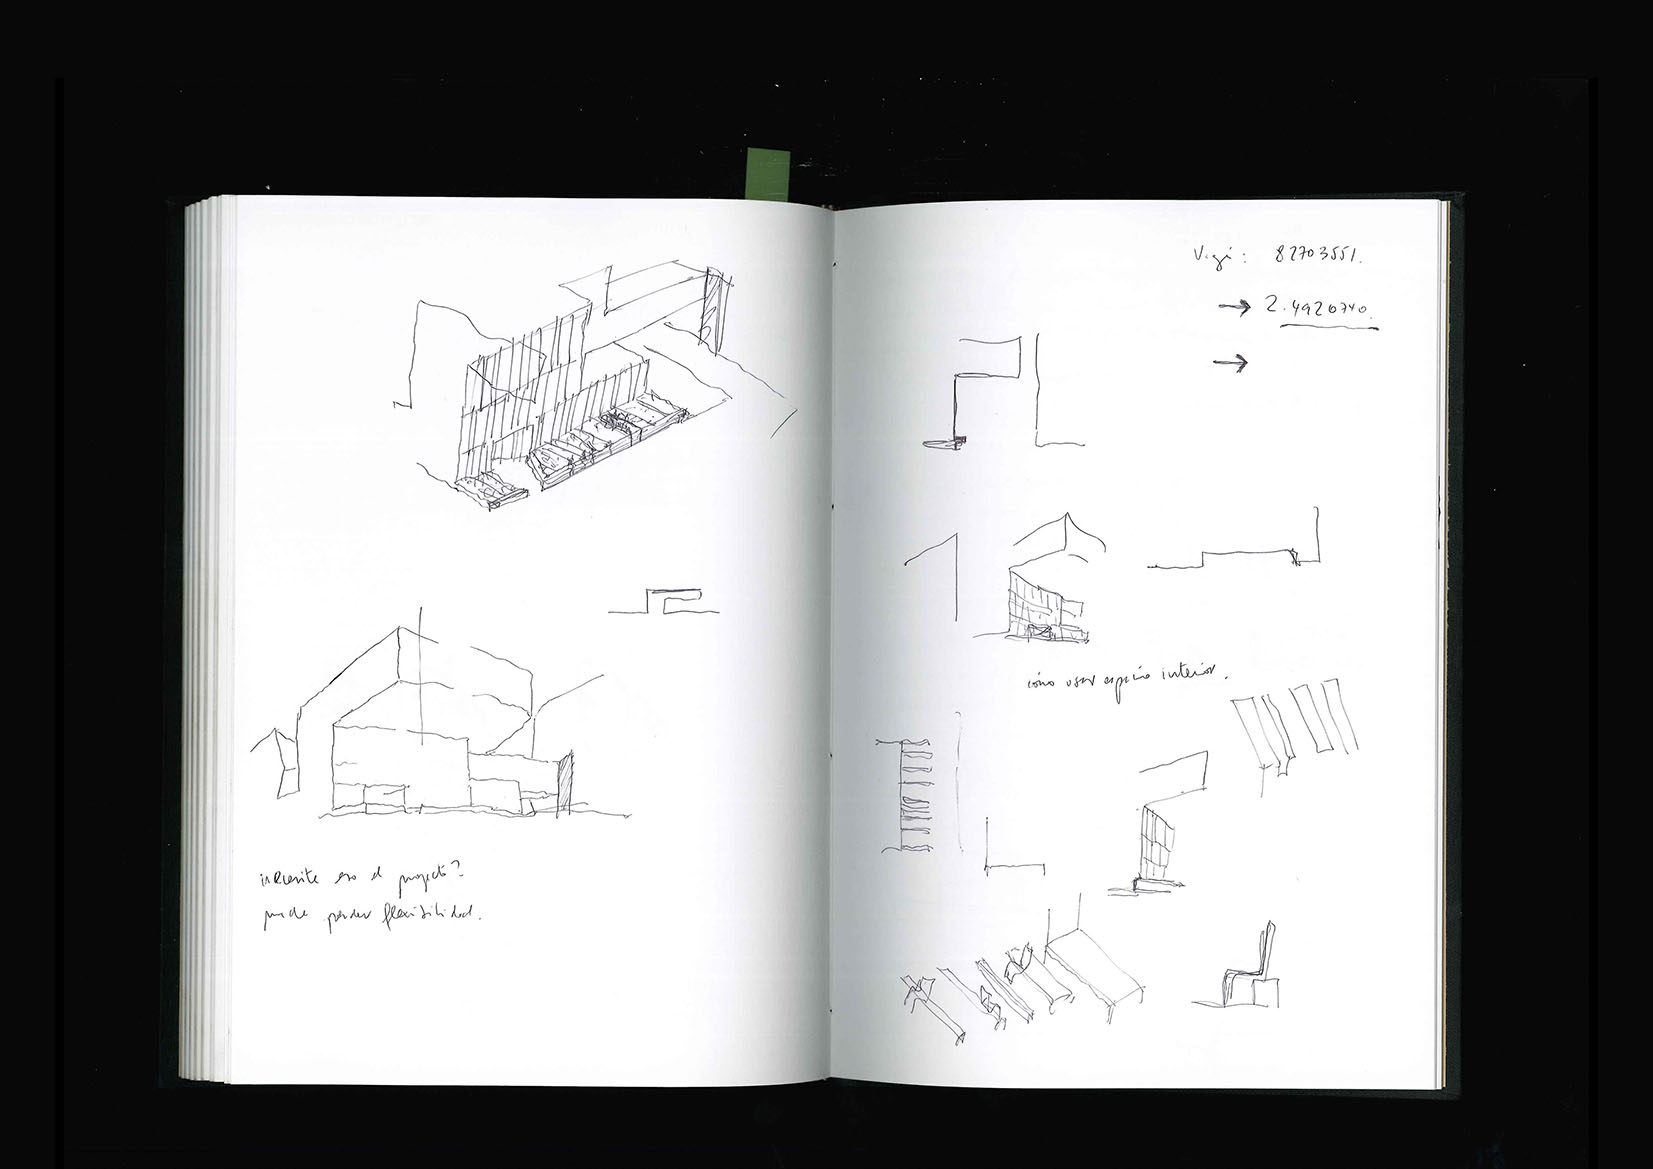 necesita eso el proyecto?
puede perder flexibilidad.
V.gi : 82703551.
→ 2.4920740.
→
cómo usar espacio interior.